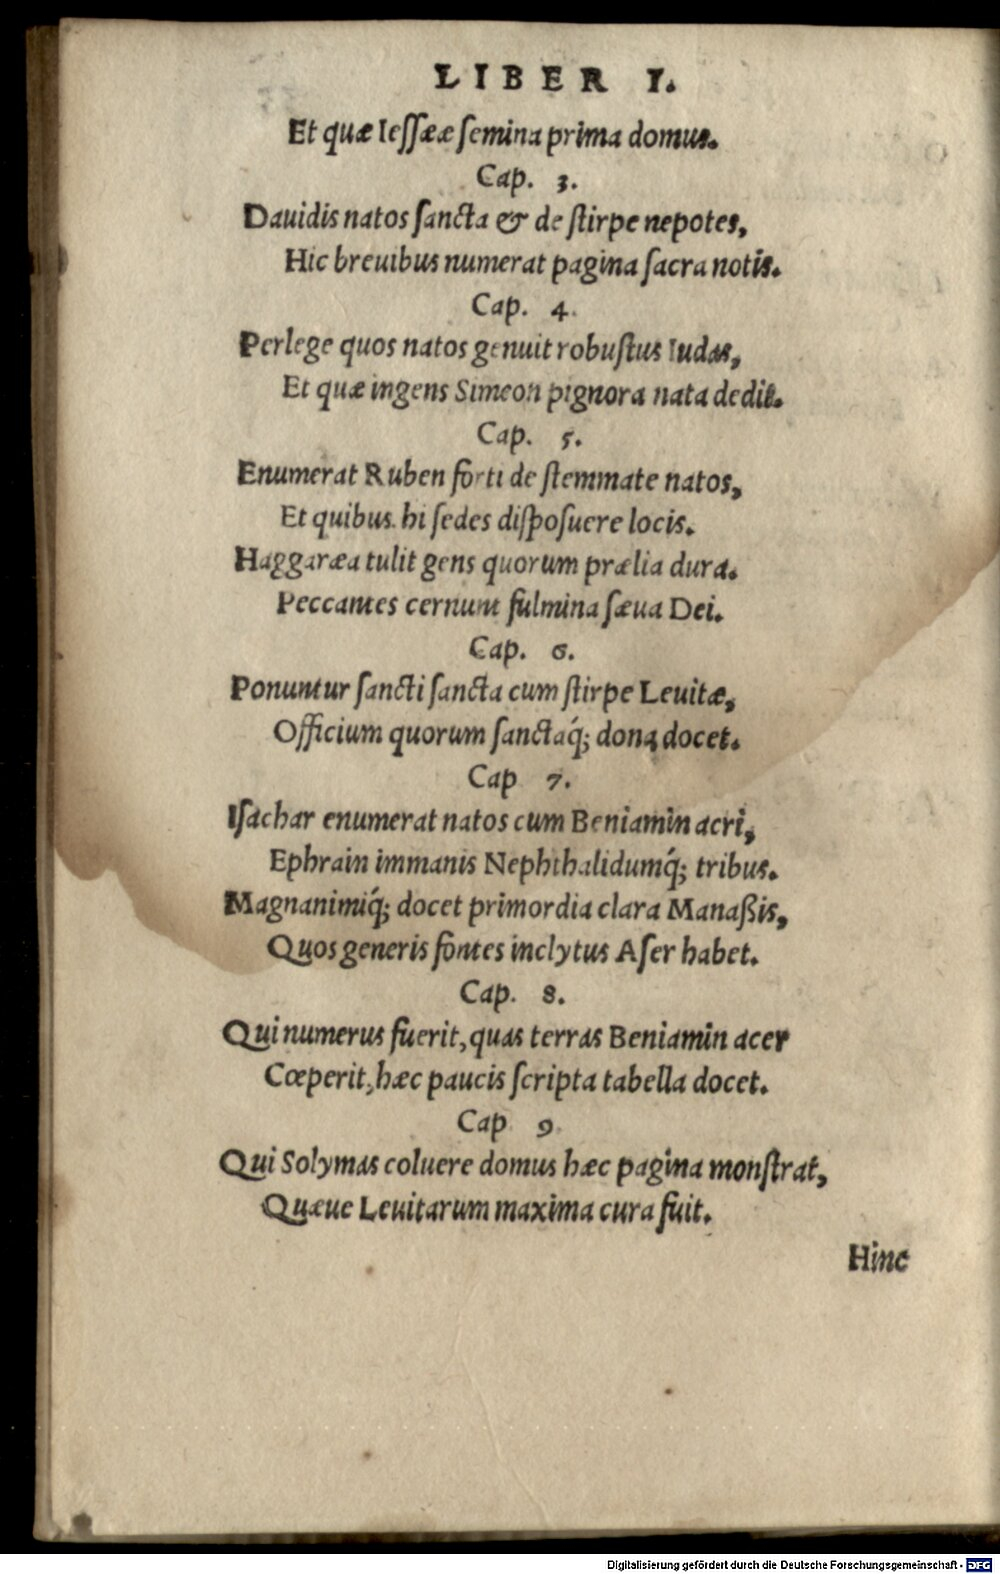 LIBER I.
Et quæ Ieſſææ ſemina prima domus.
Cap. 3.
Dauidis natos ſancta & de ſtirpe nepotes,
Hic breuibus numerat pagina ſacra notis.
Cap. 4.
Perlege quos natos genuit robuſtus Iudas,
Et quæ ingens Simeon pignora nata dedit.
Cap. 5.
Enumerat Ruben forti de ſtemmate natos,
Et quibus hi ſedes diſpoſuere locis.
Haggaræa tulit gens quorum prælia dura.
Peccantes cernunt fulmina ſæua Dei.
Cap. 6.
Ponuntur ſancti ſancta cum ſtirpe Leuitæ,
Officium quorum ſanctaq́; dona docet.
Cap 7.
Iſachar enumerat natos cum Beniamin acri,
Ephrain immanis Nephthalidumq́; tribus.
Magnanimiq́; docet primordia clara Manaßis,
Quos generis fontes inclytus Aſer habet.
Cap. 8.
Qui numerus fuerit, quas terras Beniamin acer
Cœperit, hæc paucis ſcripta tabella docet.
Cap 9.
Qui Solymas coluere domus hæc pagina monſtrat,
Quæue Leuitarum maxima cura fuit.
Hinc
Digitalisierung gefördert durch die Deutsche Forschungsgemeinschaft - DFG